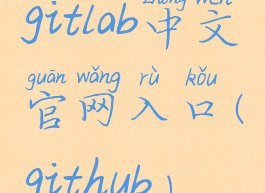 zhōng wén
gitlab中文
guān wǎng rù kǒu
官网入口(
github)